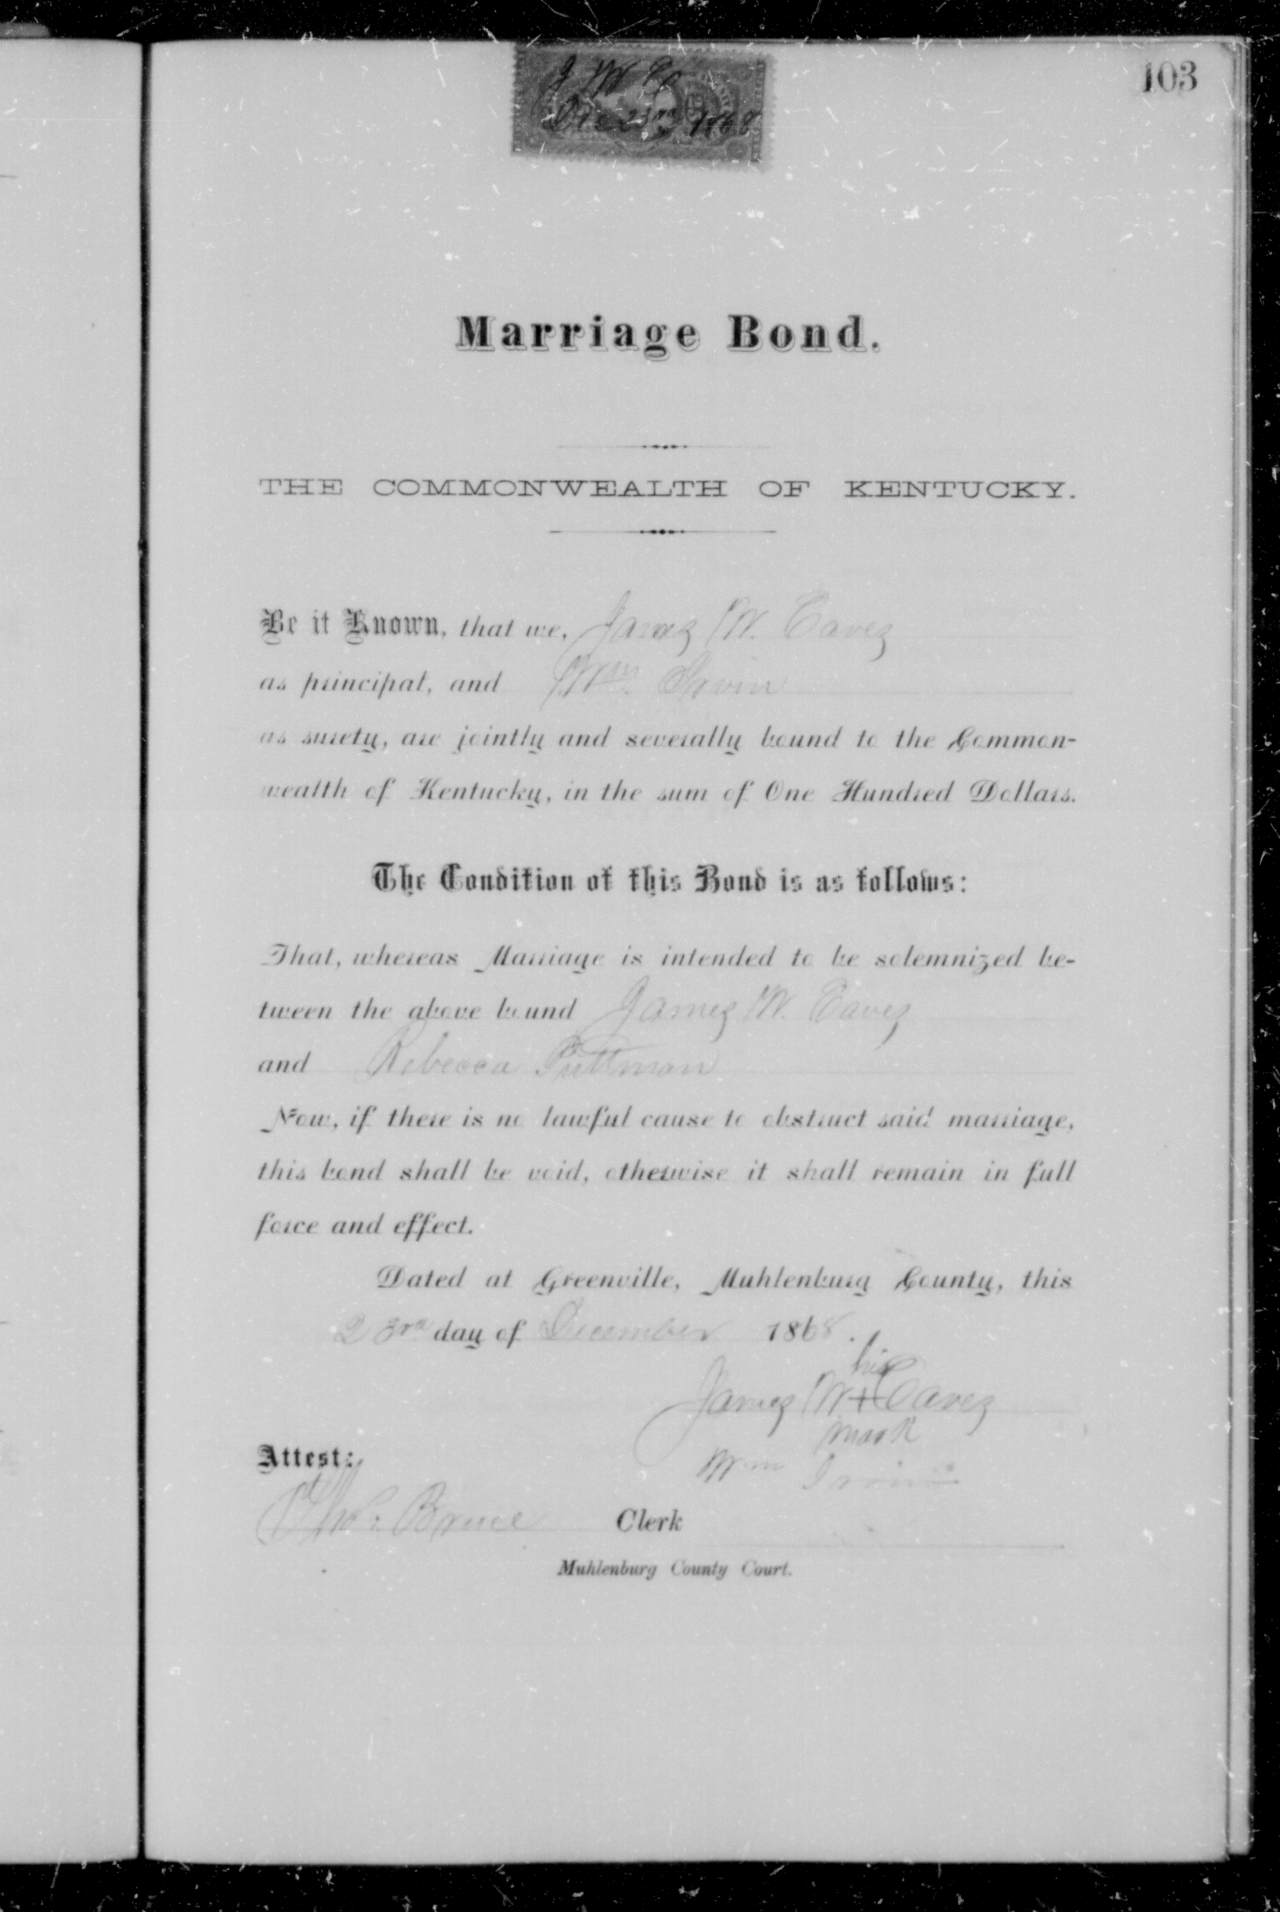 103
J W E
Dec 23rd 1868
Marriage Bond.
THE COMMONWEALTH OF KENTUCKY.
Be it Known, that we, James W. Eaves
as principal, and Wm. Irvin
as surety, are jointly and severally bound to the Common-
wealth of Kentucky, in the sum of One Hundred Dollars.
The Condition of this Bond is as follows:
That, whereas Marriage is intended to be solemnized be-
tween the above bound James W. Eaves
and Rebecca Pittman
Now, if there is no lawful cause to obstruct said marriage,
this bond shall be void, otherwise it shall remain in full
force and effect.
Dated at Greenville, Muhlenburg County, this
23rd day of December 1868.
his
James W + Eaves
mark
Attest:
Wm Irvin
Tho. Bruce Clerk
Muhlenburg County Court.